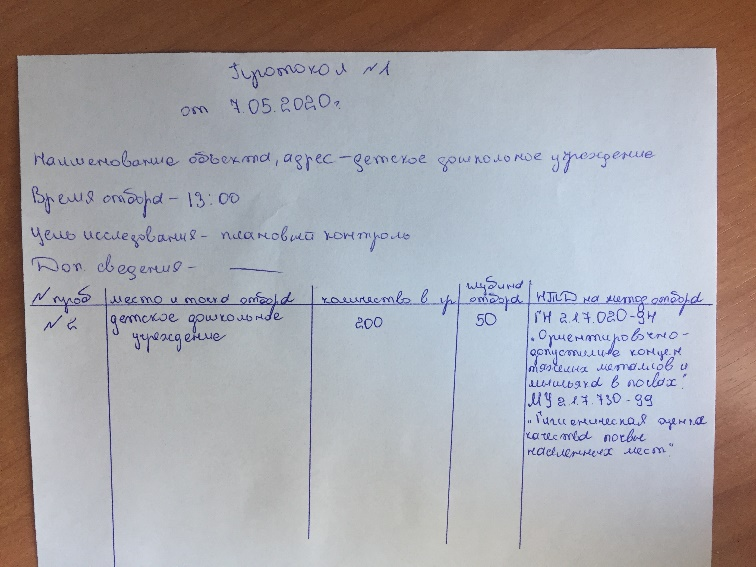 Протокол №1
от 7.05.2020г.
Наименование объекта, адрес – детское дошкольное учреждение
Время отбора – 13:00
Цель исследования – плановый контроль
Доп. сведения –
№ проб место и точка отбора количество в гр глубина отбора НТД на метод отбора
№2 детское дошкольное учреждение 200 50 ГН 2.1.7.020-94
„Ориентировочно-
допустимые концен
тяжелых металлов и
мышьяка в почвах".
МУ 2.1.7.730-99
„Гигиеническая оценка
качества почвы
населенных мест"